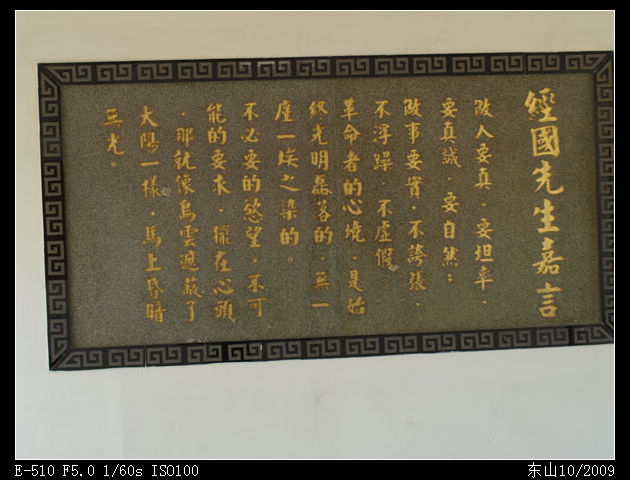 經國先生嘉言
做人要真，要坦率，
要真誠，要自然；
做事要實，不誇張，
不浮躁，不虛假。
革命者的心境，是始
終光明磊落的，無一
塵一埃之染的。
不必要的慾望，不可
能的要求，擺在心頭
，那就像烏雲遮蔽了
太陽一樣，馬上昏暗
無光。
E-510 F5.0 1/60s ISO100
东山10/2009